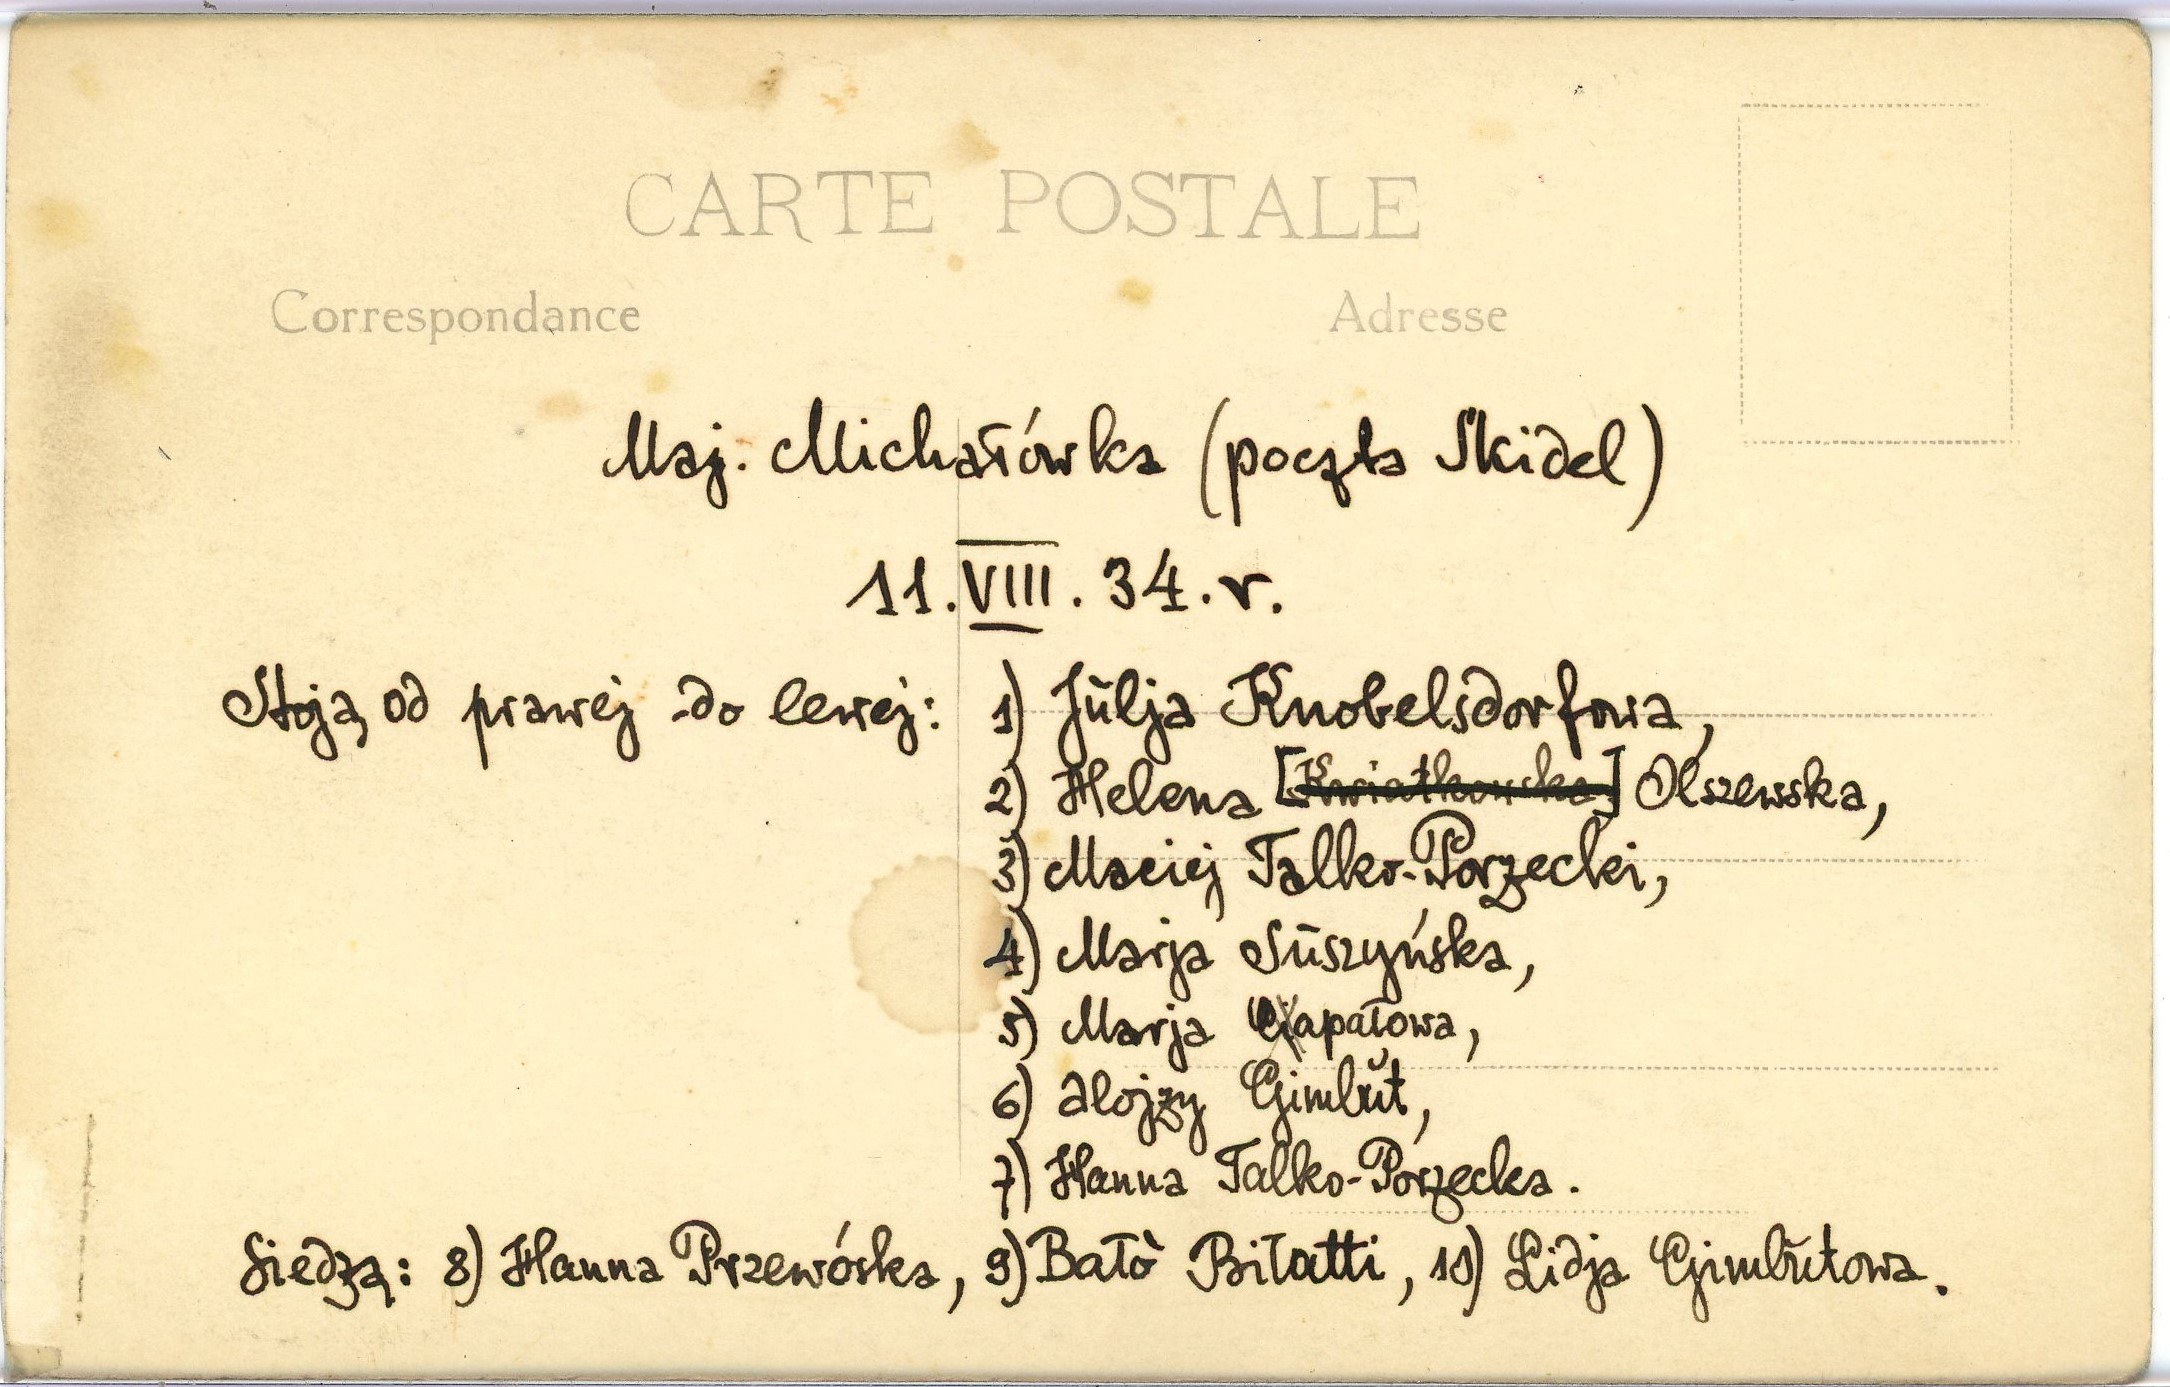 CARTE POSTALE
Correspondance Adresse
Maj. Michałówka (poczta Skidel)
11. VIII. 34. r.
Stoją od prawej do lewej: 1) Julja Knobelsdorfowa,
2) Helena [Kwiatkowska] Olszewska,
3) Maciej Talko-Porzecki,
4) Marja Suszyńska,
5) Marja Capałowa,
6) Alojzy Gimbut,
7) Hanna Talko-Porzecka.
Siedzą: 8) Hanna Przewóska, 9) Bato Bilatti, 10) Lidja Gimbutowa.